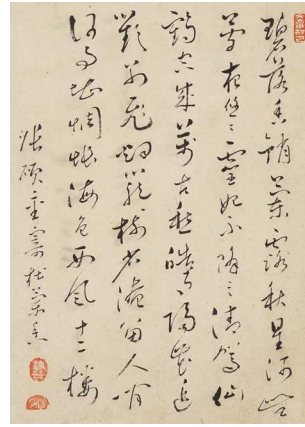 碧落香銷蘭露秋星河無
夢夜悠〻靈妃不降三清駕仙
鶴空成萬古愁皓月隔花追
歎別飛烟籠樹省淹留人間
何事堪惆悵海色西風十二樓
張碩重寄杜蘭香